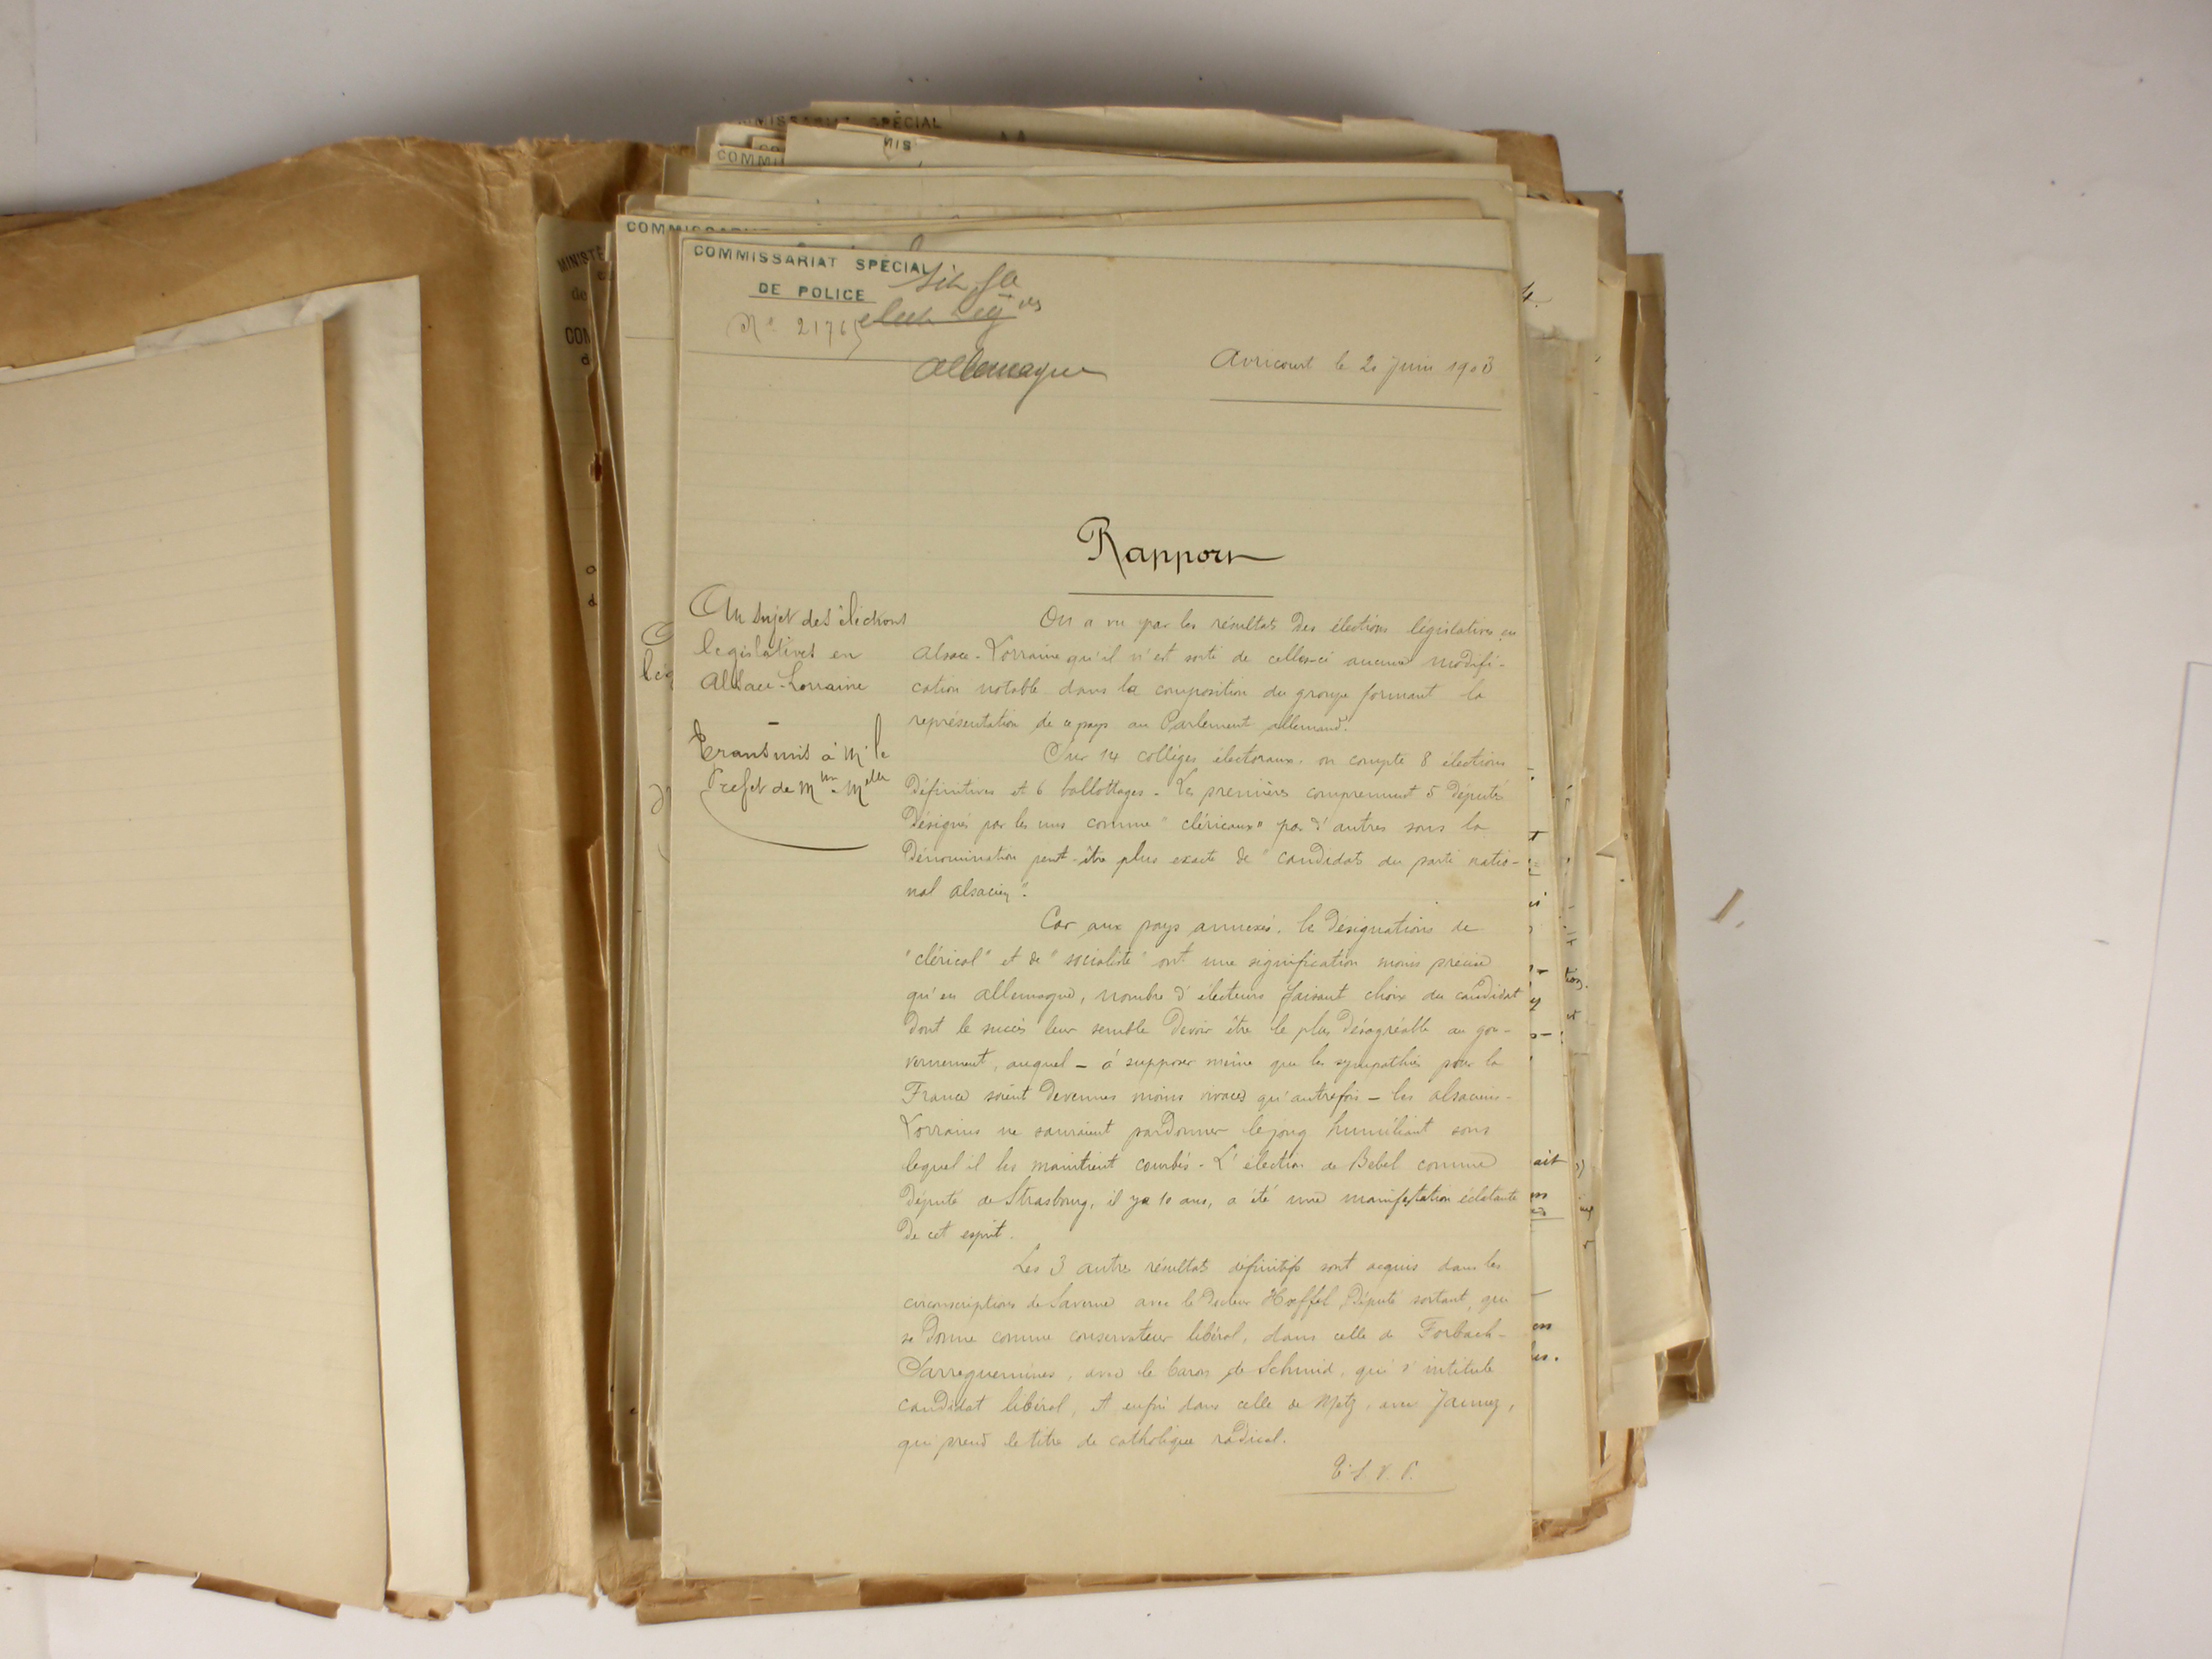 COMMISSARIAT SPÉCIAL
DE POLICE
N° 2176
Allemagne
Avricourt le 20 Juin 1903
Rapport
Au sujet des élections
legislatives en
Alsace-Lorraine
Transmis à Mr le
Préfet de Mthe Melle
On a vu par les résultats des élections législatives en
Alsace-Lorraine qu'il n'est sorti de celles-ci aucune modifi-
cation notable dans la composition du groupe formant la
représentation de ce pays au Parlement allemand.
Sur 14 collèges électoraux, on compte 8 élections
définitives et 6 ballottages. Les premières comprennent 5 députés
désignés par les uns comme "cléricaux" par d'autres sous la
dénomination peut-être plus exacte de "candidats du parti natio-
nal alsacien".
Car aux pays annexés, les désignations de
"clérical" et de "socialiste" ont une signification moins précise
qu'en Allemagne, nombre d'électeurs faisant choix du candidat
dont le succès leur semble devoir être le plus désagréable au gou-
vernement, auquel - à supposer même que les sympathies pour la
France soient devenues moins vivaces qu'autrefois - les alsaciens-
Lorrains ne sauraient pardonner le joug humiliant sous
lequel il les maintient courbés. L'élection de Bebel comme
député de Strasbourg, il y a 10 ans, a été une manifestation éclatante
de cet esprit.
Les 3 autres résultats définitifs sont acquis dans les
circonscriptions de Saverne avec le Docteur Hoeffel, député sortant, qui
se donne comme conservateur libéral, dans celle de Forbach-
Sarreguemines, avec le baron de Schmid, qui s'intitule
candidat libéral, et enfin dans celle de Metz, avec Jaunez,
qui prend le titre de catholique radical.
T. S. V. P.